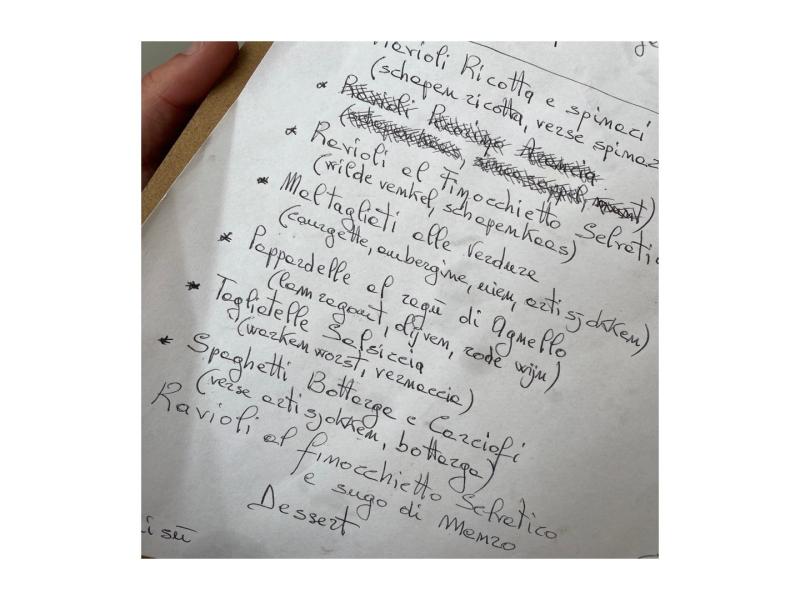 Ravioli Ricotta e spinaci
(schapen ricotta, verse spinaz
* Ravioli
* Ravioli al Finocchietto Selvatic
(wilde venkel, schapenkaas)
* Maltagliati alle verdure
(courgette, aubergine, uien, artisjokken)
* Pappardelle al ragù di Agnello
(lamragout, olijven, rode wijn)
* Tagliatelle Salsiccia
(varkenworst, vernaccia)
* Spaghetti Bottarga e Carciofi
(verse artisjokken, bottarga)
Ravioli al finocchietto Selvatico
e sugo di Manzo
Dessert
i sù